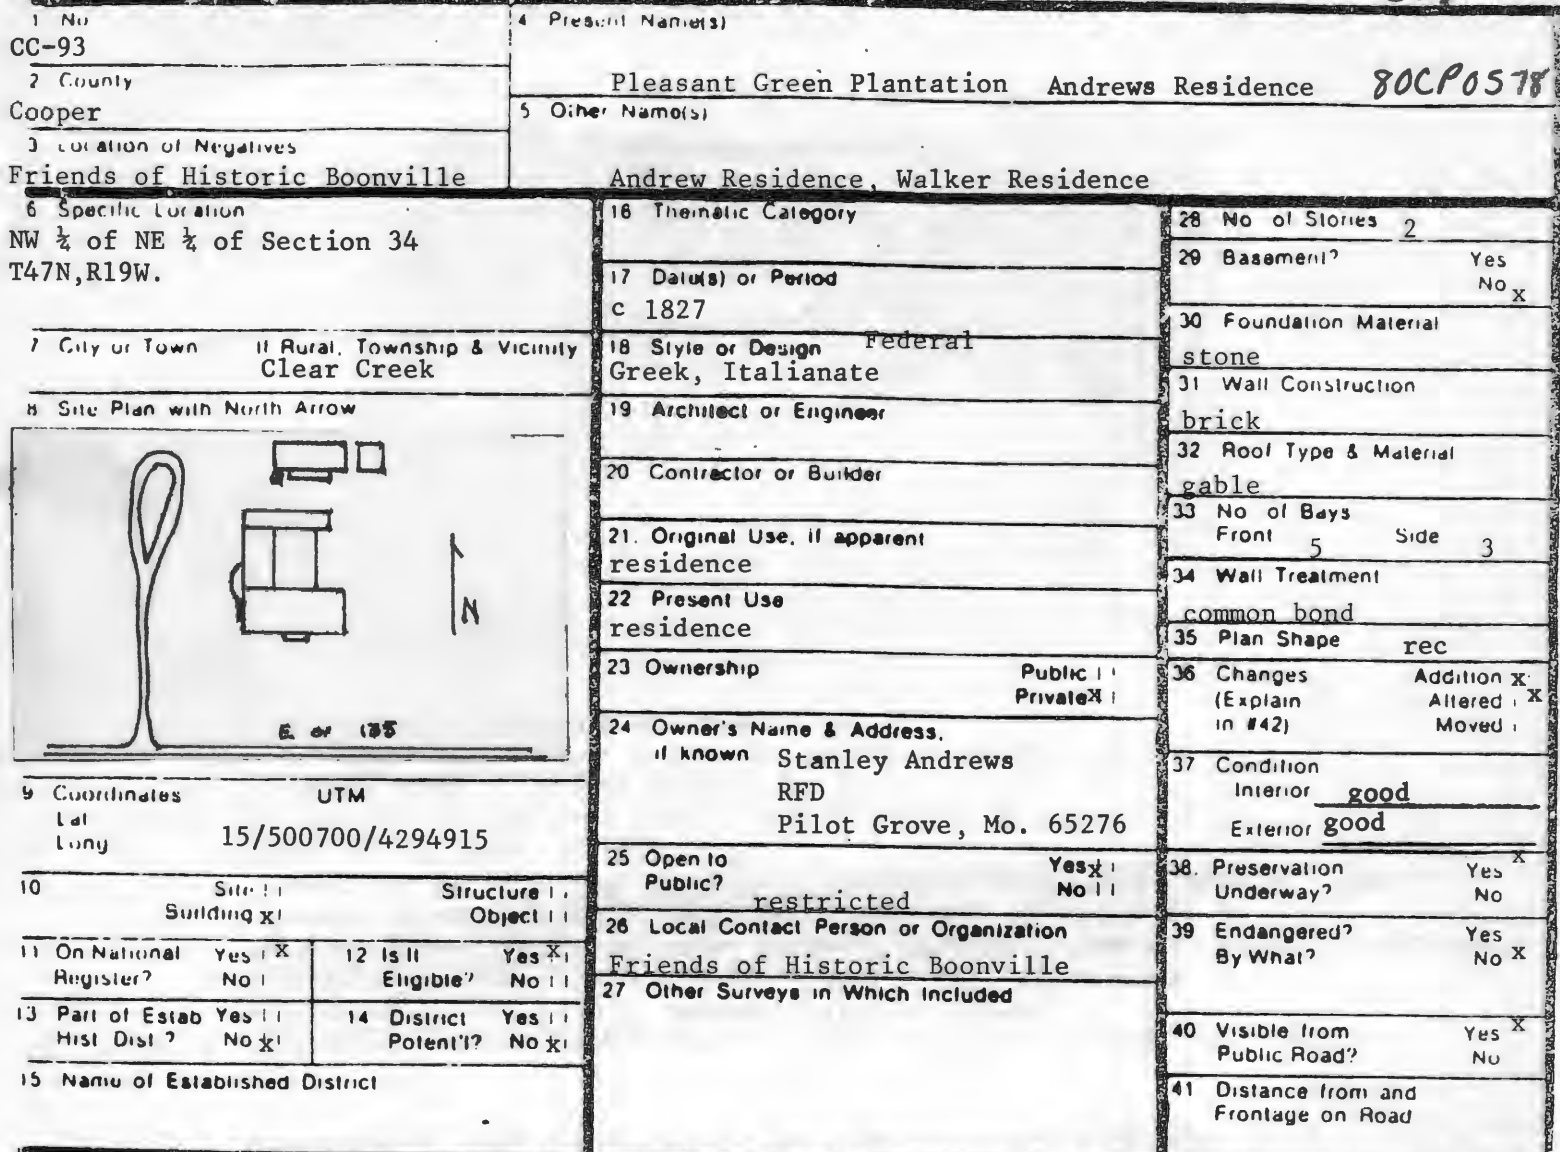 1 No
CC-93
2 County
Cooper
3 Location of Negatives
Friends of Historic Boonville
4 Present Name(s)
Pleasant Green Plantation Andrews Residence 80CP0578
5 Other Name(s)
Andrew Residence, Walker Residence
6 Specific Location
NW ¼ of NE ¼ of Section 34
T47N,R19W.
7 City or Town If Rural, Township & Vicinity
Clear Creek
8 Site Plan with North Arrow
N
E. of 135
9 Coordinates UTM
Lat
Long
15/500700/4294915
10 Site Structure
Building x Object
11 On National Register? Yes x No
12 Is It Eligible? Yes x No
13 Part of Estab Hist Dist? Yes No x
14 District Potent'l? Yes No x
15 Name of Established District
16 Thematic Category
17 Date(s) or Period
c 1827
18 Style or Design Federal
Greek, Italianate
19 Architect or Engineer
20 Contractor or Builder
21. Original Use, if apparent
residence
22 Present Use
residence
23 Ownership Public
Private x
24 Owner's Name & Address,
if known Stanley Andrews
RFD
Pilot Grove, Mo. 65276
25 Open to Public? Yes x
No
restricted
26 Local Contact Person or Organization
Friends of Historic Boonville
27 Other Surveys in Which Included
28 No of Stories 2
29 Basement? Yes
No x
30 Foundation Material
stone
31 Wall Construction
brick
32 Roof Type & Material
gable
33 No of Bays
Front 5 Side 3
34 Wall Treatment
common bond
35 Plan Shape rec
36 Changes Addition x
(Explain Altered x
in #42) Moved
37 Condition
Interior good
Exterior good
38. Preservation Yes x
Underway? No
39 Endangered? Yes
By What? No x
40 Visible from Yes x
Public Road? No
41 Distance from and
Frontage on Road